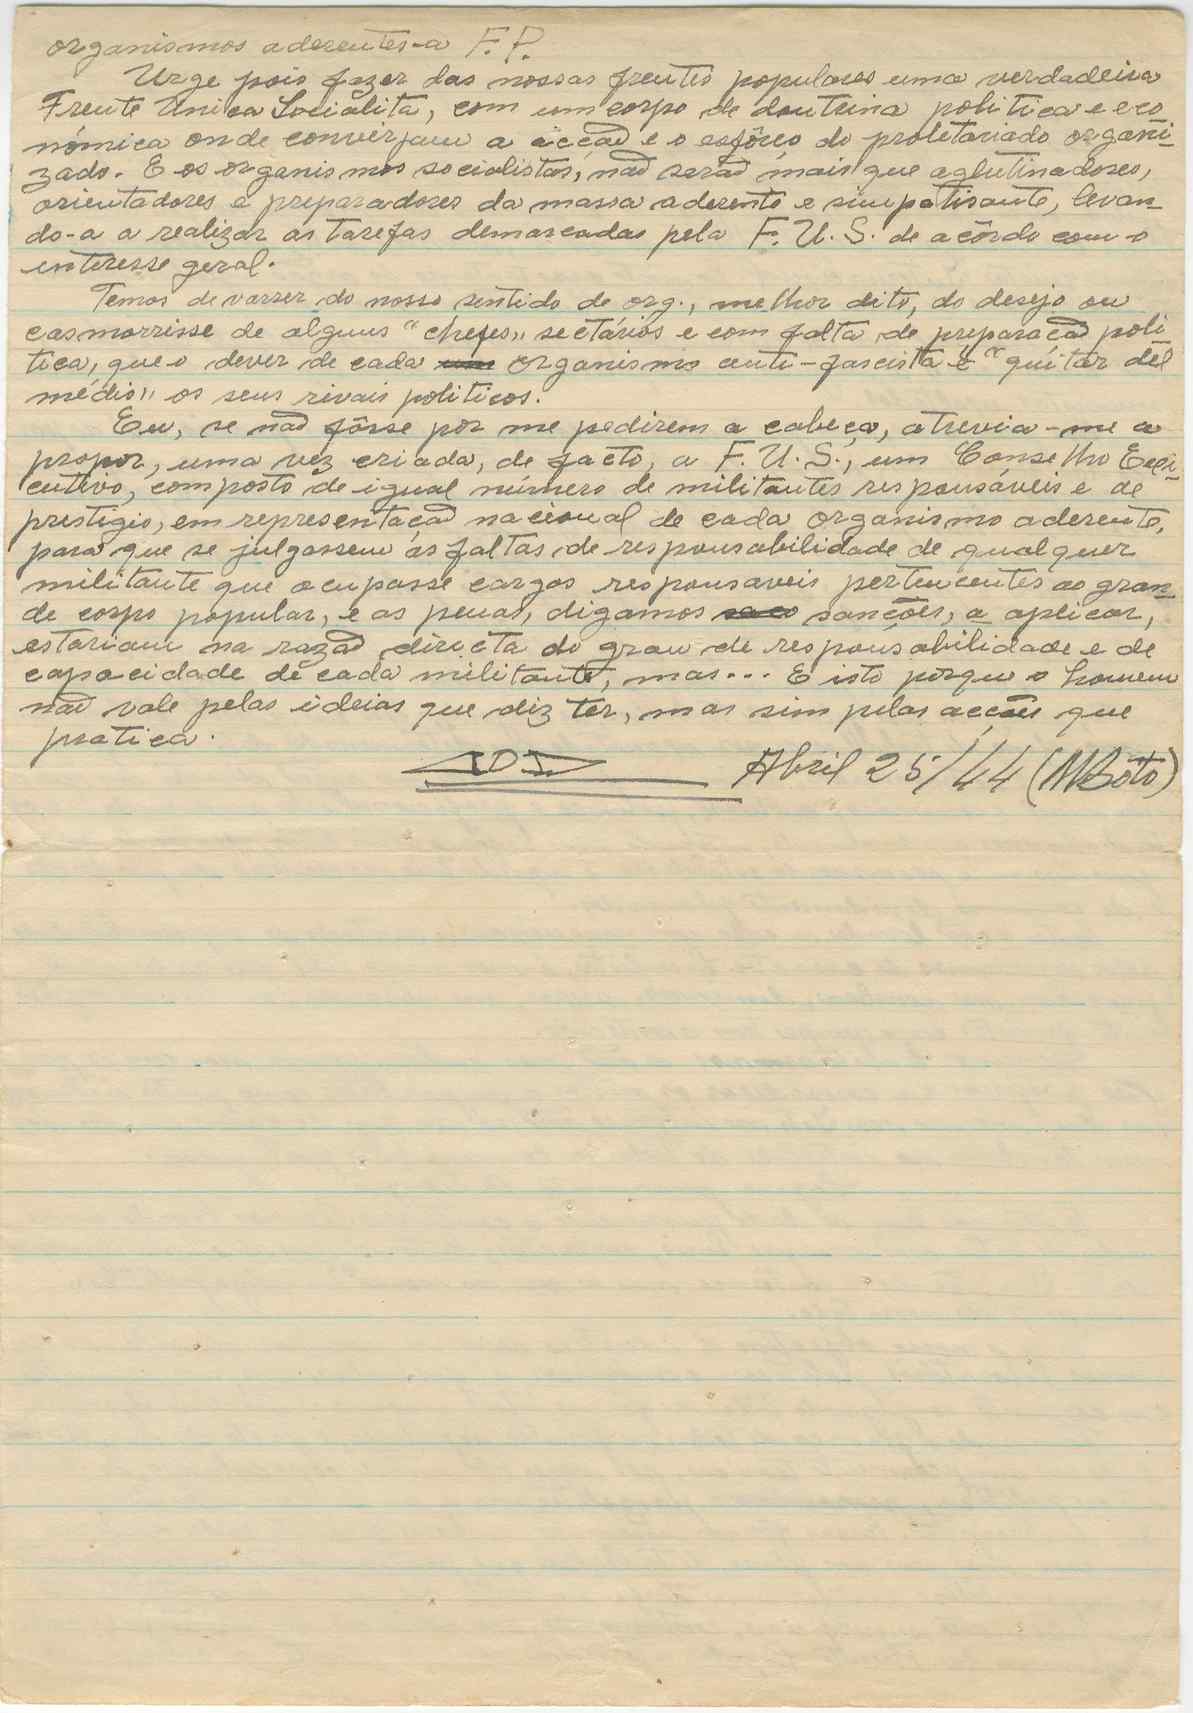 organismos aderentes-a F.P.
Urge pois fazer das nossas frentes populares uma verdadeira
Frente Unica Socialita, com um corpo de doutrina politica e eco
nómica onde converjam a acção e o esfôrço do proletariado organi-
zado. E os organismos socialistas, não serão mais que aglutinadores,
orientadores e preparadores da massa aderente e simpatisante, levan-
do-a a realizar as tarefas demarcadas pela F.U.S. de acôrdo com o
interesse geral.
Temos de varrer do nosso sentido de org., melhor dito, do desejo ou
casmorrisse de alguns "chefes,, sectários e com falta de preparação poli
tica, que o dever de cada organismo anti-fascista é "quitar del
médio,, os seus rivais politicos.
Eu, se não fôsse por me pedirem a cabeça, atrevia-me a
propor, uma vez criada, de facto, a F.U.S., um Conselho Exe-
cutivo, composto de igual número de militantes responsáveis e de
prestigio, em representação nacional de cada organismo aderente,
para que se julgassem as faltas de responsabilidade de qualquer
militante que ocupasse cargos responsaveis pertencentes ao gran-
de corpo popular, e as penas, digamos sanções, a aplicar,
estariam na razão directa do grau de responsabilidade e de
capacidade de cada militante, mas... E isto porque o homem
não vale pelas ideias que diz ter, mas sim pelas acções que
pratica.
Abril 25/44 (MBôto)